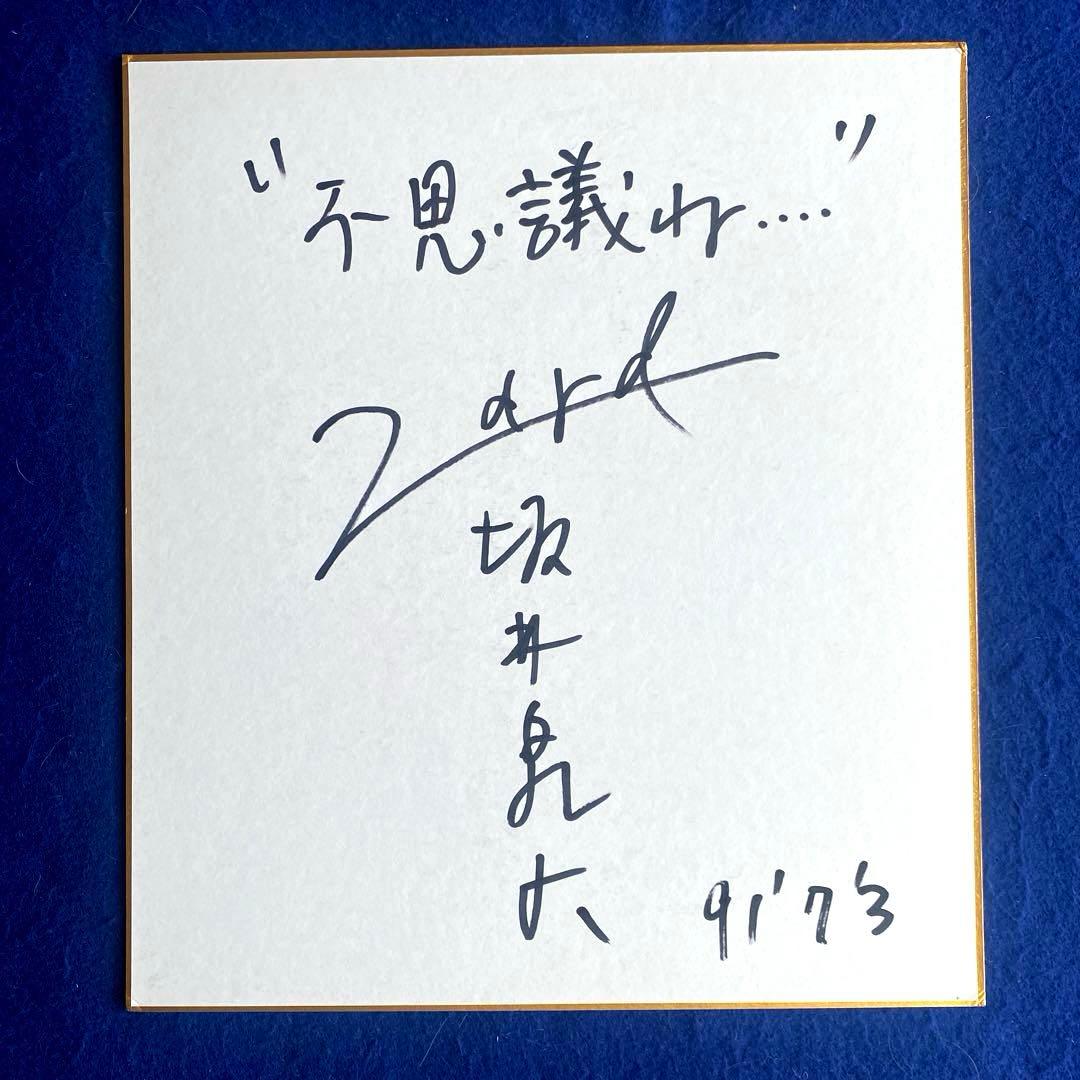 "不思議ね‥‥"
Zard
坂井泉水
91'7'3